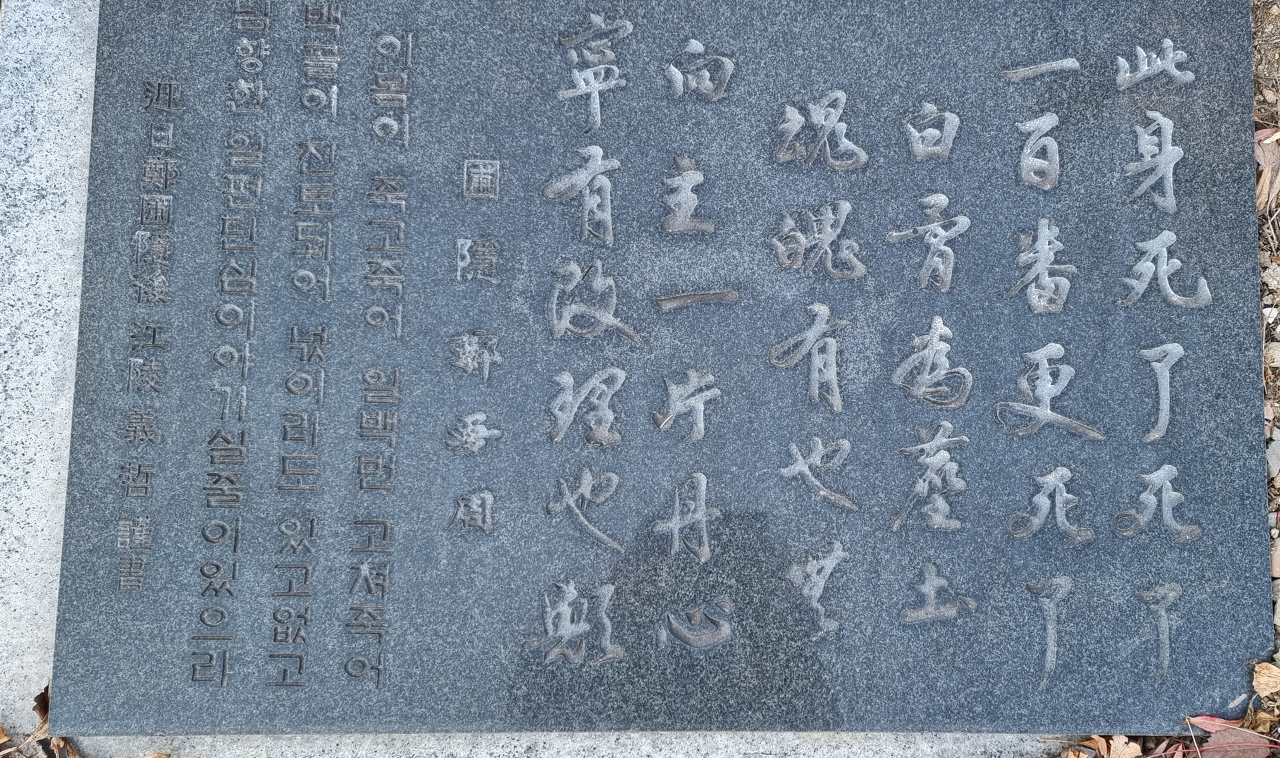 此身死了死了
一百番更死了
白骨為塵土
魂魄有也無
向主一片丹心
寧有改理也歟
圃隱 鄭夢周
이몸이 죽고죽어 일백번 고쳐죽어
백골이 진토되어 넋이라도 있고없고
님향한 일편단심이야 가실줄이 있으랴
迎日鄭圃隱後 江陵 義哲 謹書